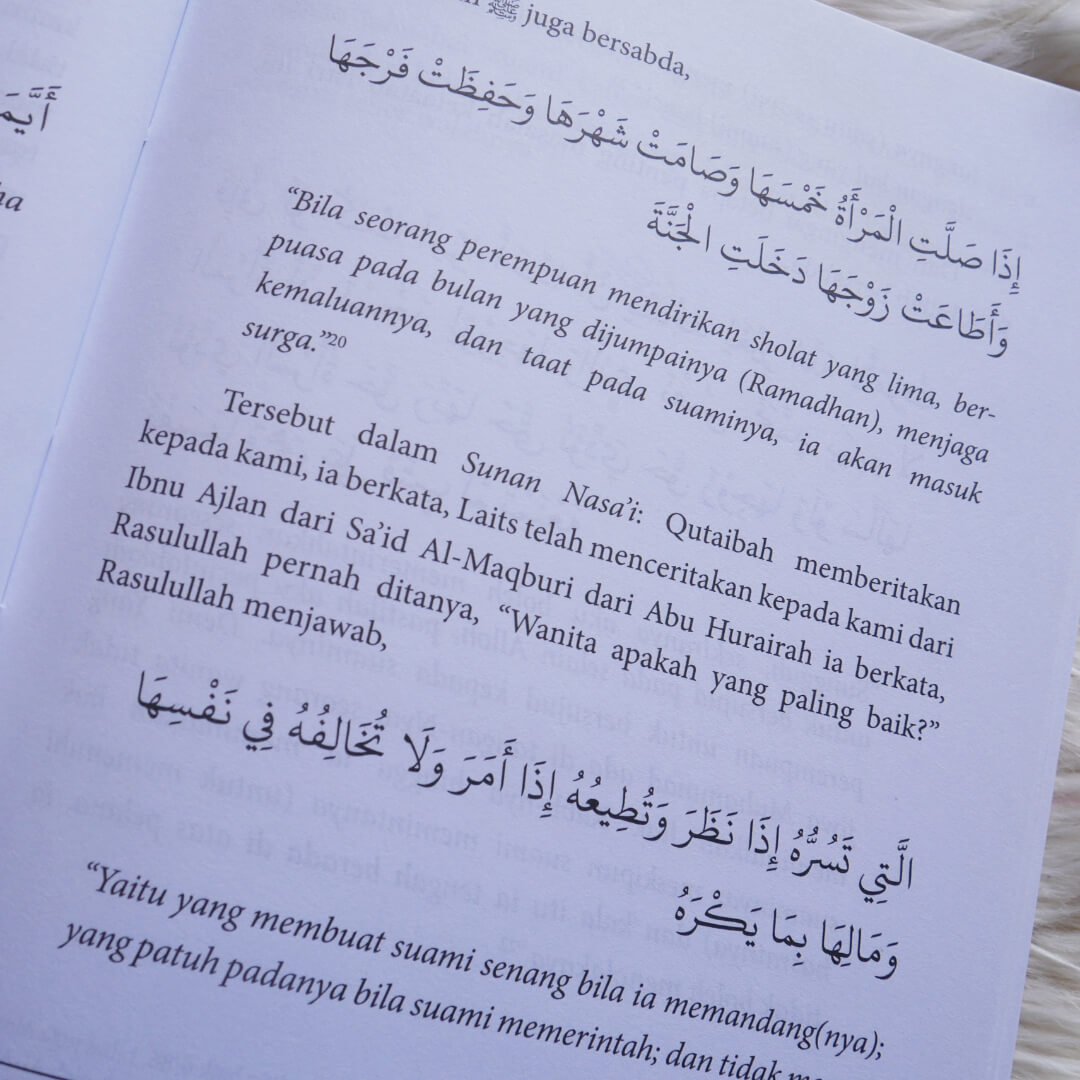 ﷺ juga bersabda,
إِذَا صَلَّتِ الْمَرْأَةُ خَمْسَهَا وَصَامَتْ شَهْرَهَا وَحَفِظَتْ فَرْجَهَا
وَأَطَاعَتْ زَوْجَهَا دَخَلَتِ الْجَنَّةَ
“Bila seorang perempuan mendirikan sholat yang lima, ber-
puasa pada bulan yang dijumpainya (Ramadhan), menjaga
kemaluannya, dan taat pada suaminya, ia akan masuk
surga.”20
Tersebut dalam Sunan Nasa’i: Qutaibah memberitakan
kepada kami, ia berkata, Laits telah menceritakan kepada kami dari
Ibnu Ajlan dari Sa’id Al-Maqburi dari Abu Hurairah ia berkata,
Rasulullah pernah ditanya, “Wanita apakah yang paling baik?”
Rasulullah menjawab,
الَّتِي تَسُرُّهُ إِذَا نَظَرَ وَتُطِيعُهُ إِذَا أَمَرَ وَلَا تُخَالِفُهُ فِي نَفْسِهَا
وَمَالِهَا بِمَا يَكْرَهُ
“Yaitu yang membuat suami senang bila ia memandang(nya);
yang patuh padanya bila suami memerintah; dan tidak